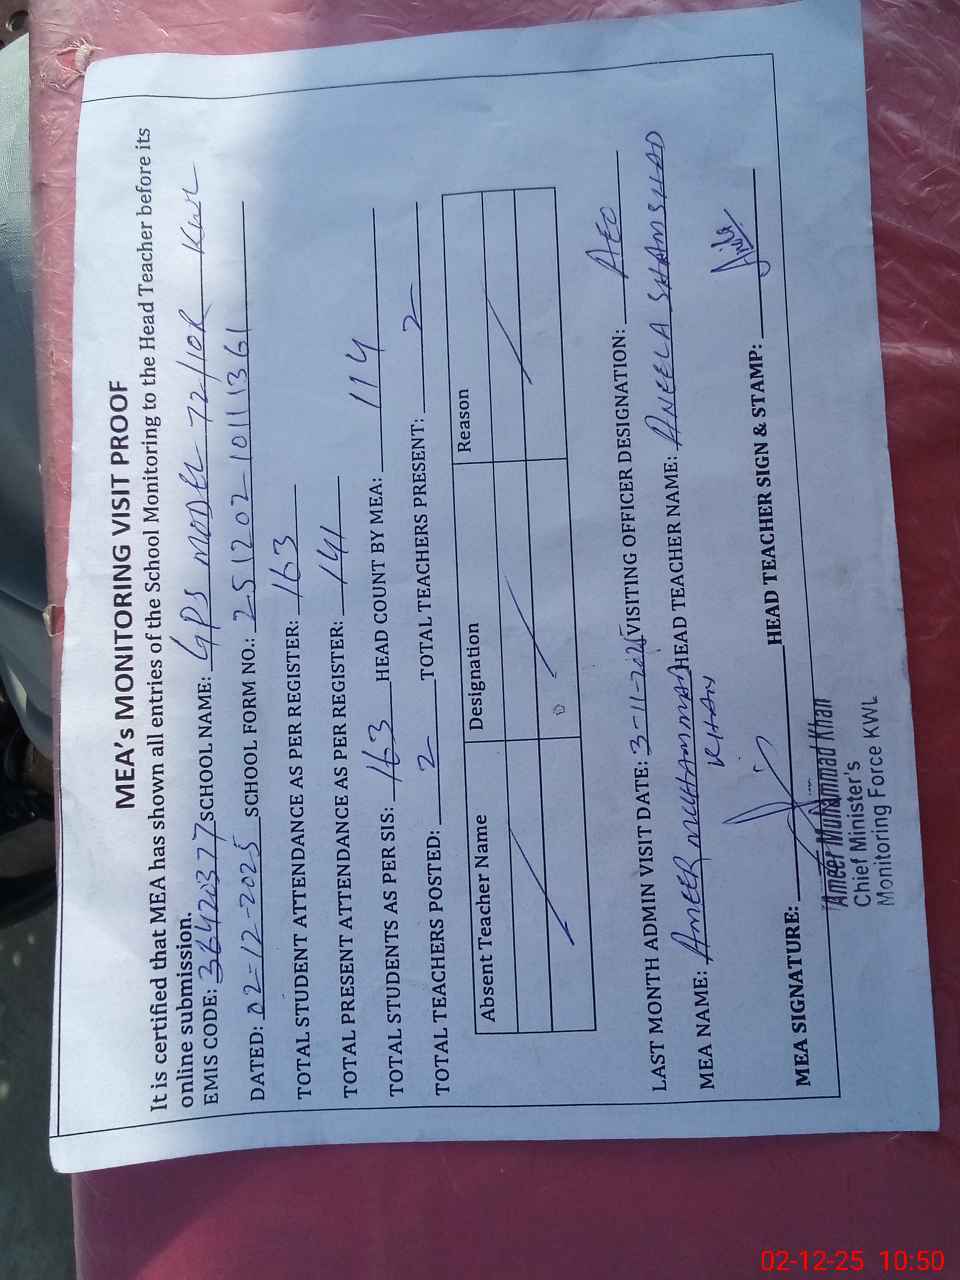 MEA's MONITORING VISIT PROOF
It is certified that MEA has shown all entries of the School Monitoring to the Head Teacher before its
online submission.
EMIS CODE: 36420377 SCHOOL NAME: GPS MODEL 72/10R KWL
DATED: 02-12-2025 SCHOOL FORM NO.: 251202-10111361
TOTAL STUDENT ATTENDANCE AS PER REGISTER: 163
TOTAL PRESENT ATTENDANCE AS PER REGISTER: 141
TOTAL STUDENTS AS PER SIS: 163 HEAD COUNT BY MEA: 114
TOTAL TEACHERS POSTED: 2 TOTAL TEACHERS PRESENT: 2
Absent Teacher Name Designation Reason
LAST MONTH ADMIN VISIT DATE: 3-11-2025 VISITING OFFICER DESIGNATION: AEO
MEA NAME: AMEER MUHAMMAD HEAD TEACHER NAME: ANEELA SHAMSHAD
KHAN
MEA SIGNATURE: HEAD TEACHER SIGN & STAMP:
Ameer Muhammad Khan
Chief Minister's
Monitoring Force KWL
02-12-25 10:50